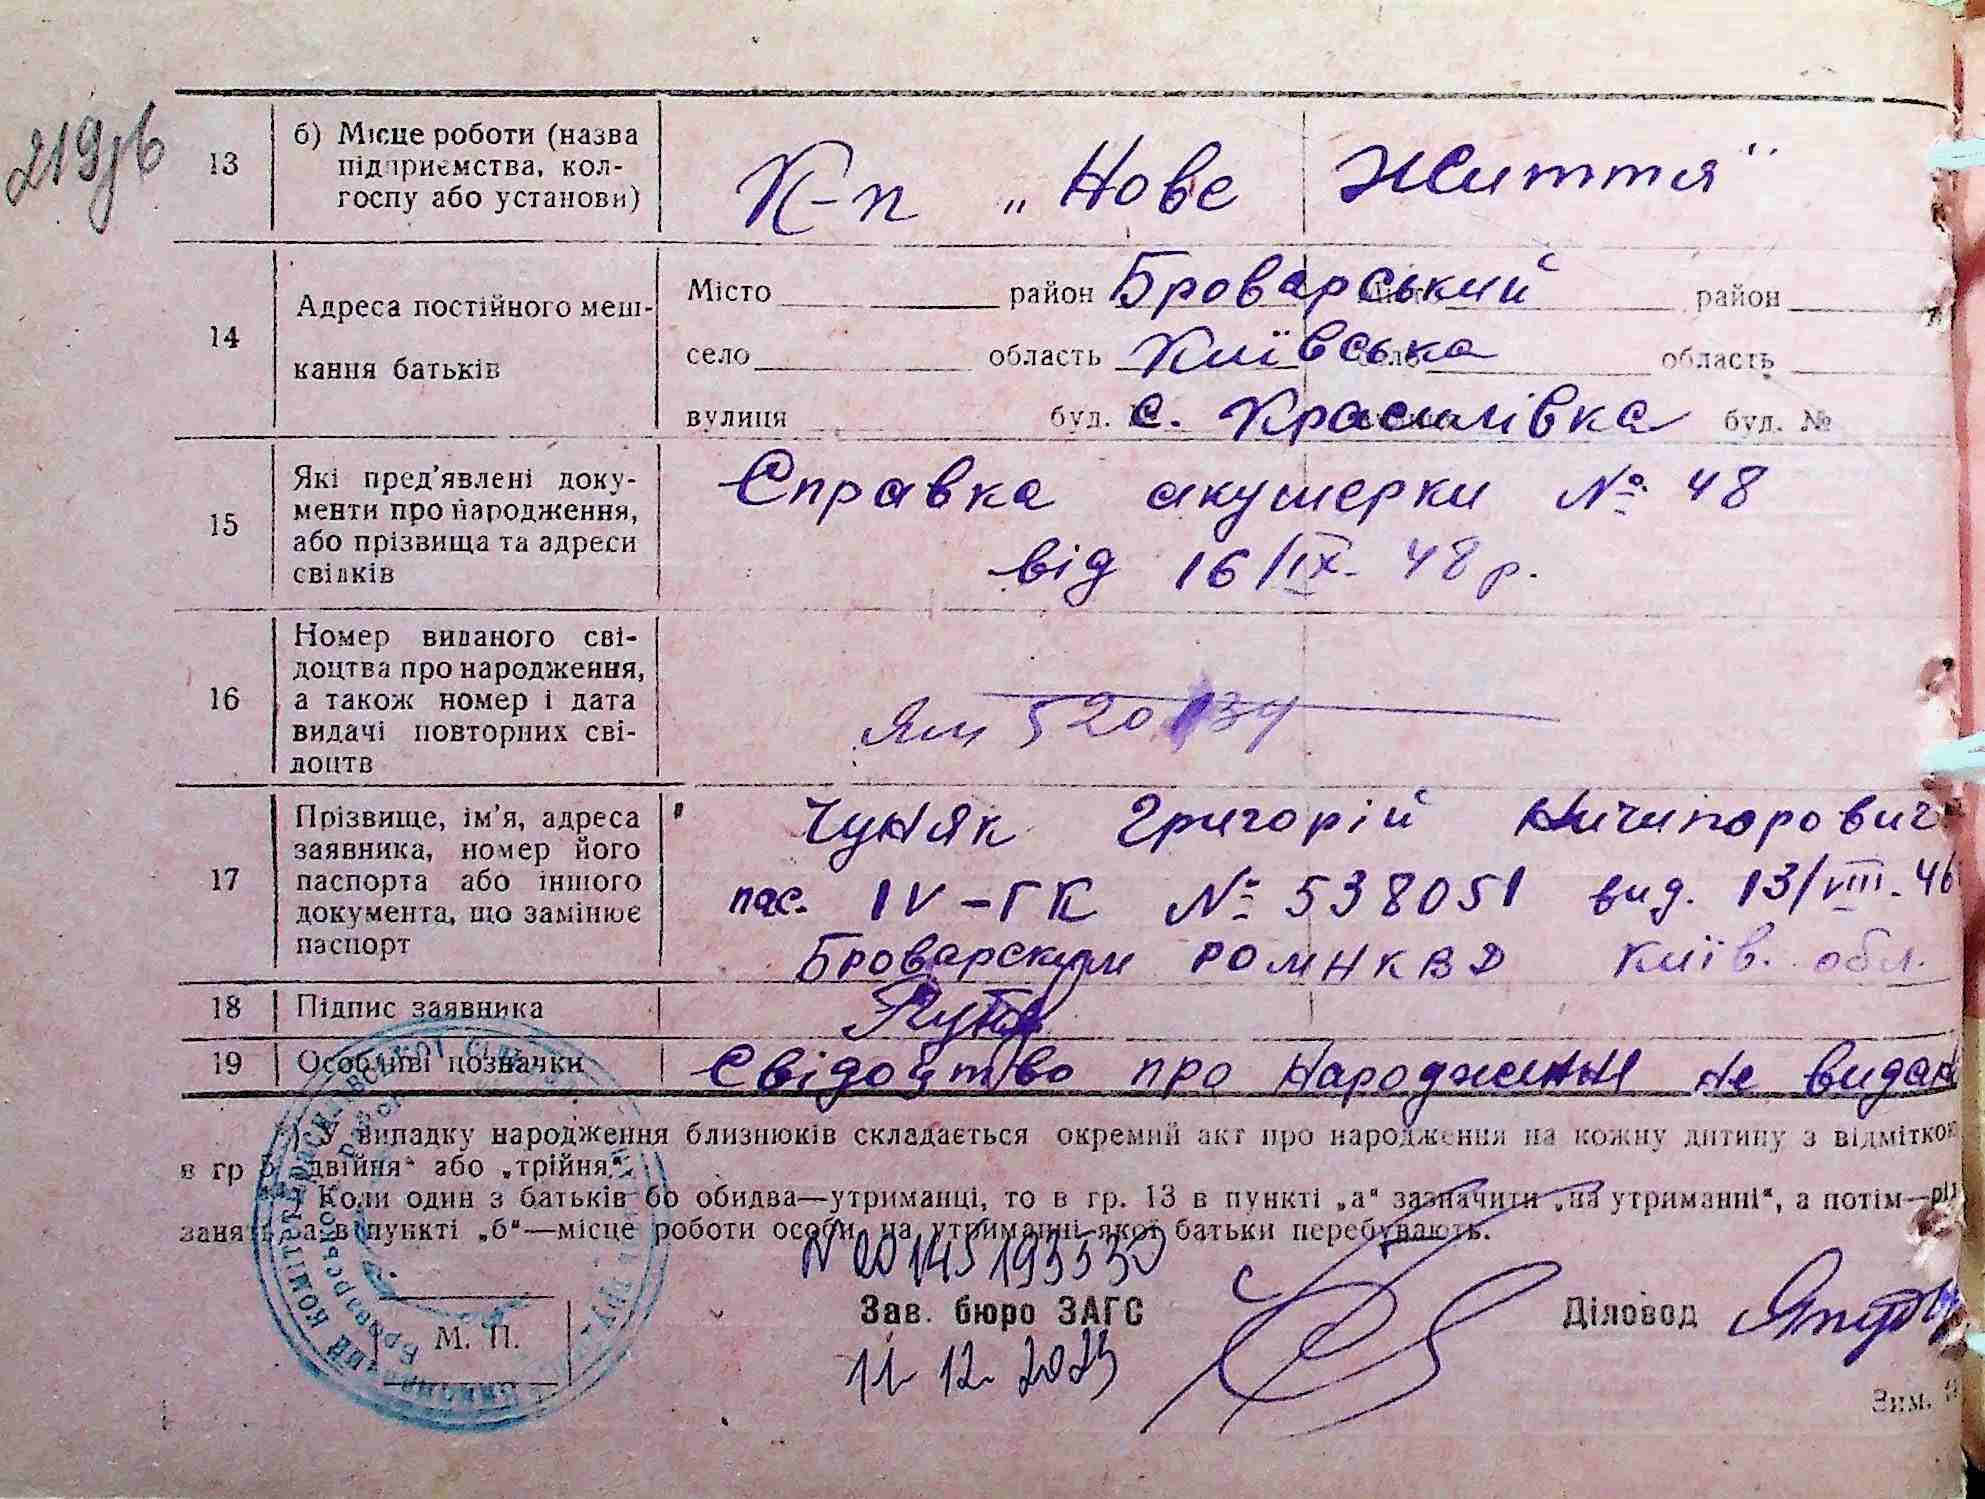 219зв
13 б) Місце роботи (назва
підприємства, кол-
госпу або установи)
К-п „Нове Життя"
14 Адреса постійного меш-
кання батьків
Місто район Броварський район
село область Київська область
вулиця буд. с. Красилівка буд. №
15 Які пред'явлені доку-
менти про народження,
або прізвища та адреси
свідків
Справка акушерки № 48
від 16/IX. 48 р.
16 Номер виданого сві-
доцтва про народження,
а також номер і дата
видачі повторних сві-
доцтв
17 Прізвище, ім'я, адреса
заявника, номер його
паспорта або іншого
документа, що замінює
паспорт
Чуняк Григорій Ничипорович
пас. IV-ГК № 538051 вид. 13/VIII. 46
Броварским РОМНКВД Київ. обл.
18 Підпис заявника
19 Особливі позначки
Свідоцтво про народження не видан
*) У випадку народження близнюків складається окремий акт про народження на кожну дитину з відміткою
в гр „двійня" або „трійня".
Коли один з батьків бо обидва—утриманці, то в гр. 13 в пункті „а" зазначити „на утриманні", а потім—рід
занять, а в пункті „б"—місце роботи особи, на утриманні якої батьки перебувають.
N 00145193330
Зав. бюро ЗАГС Діловод
М. П.
11 12 2023
Зим.